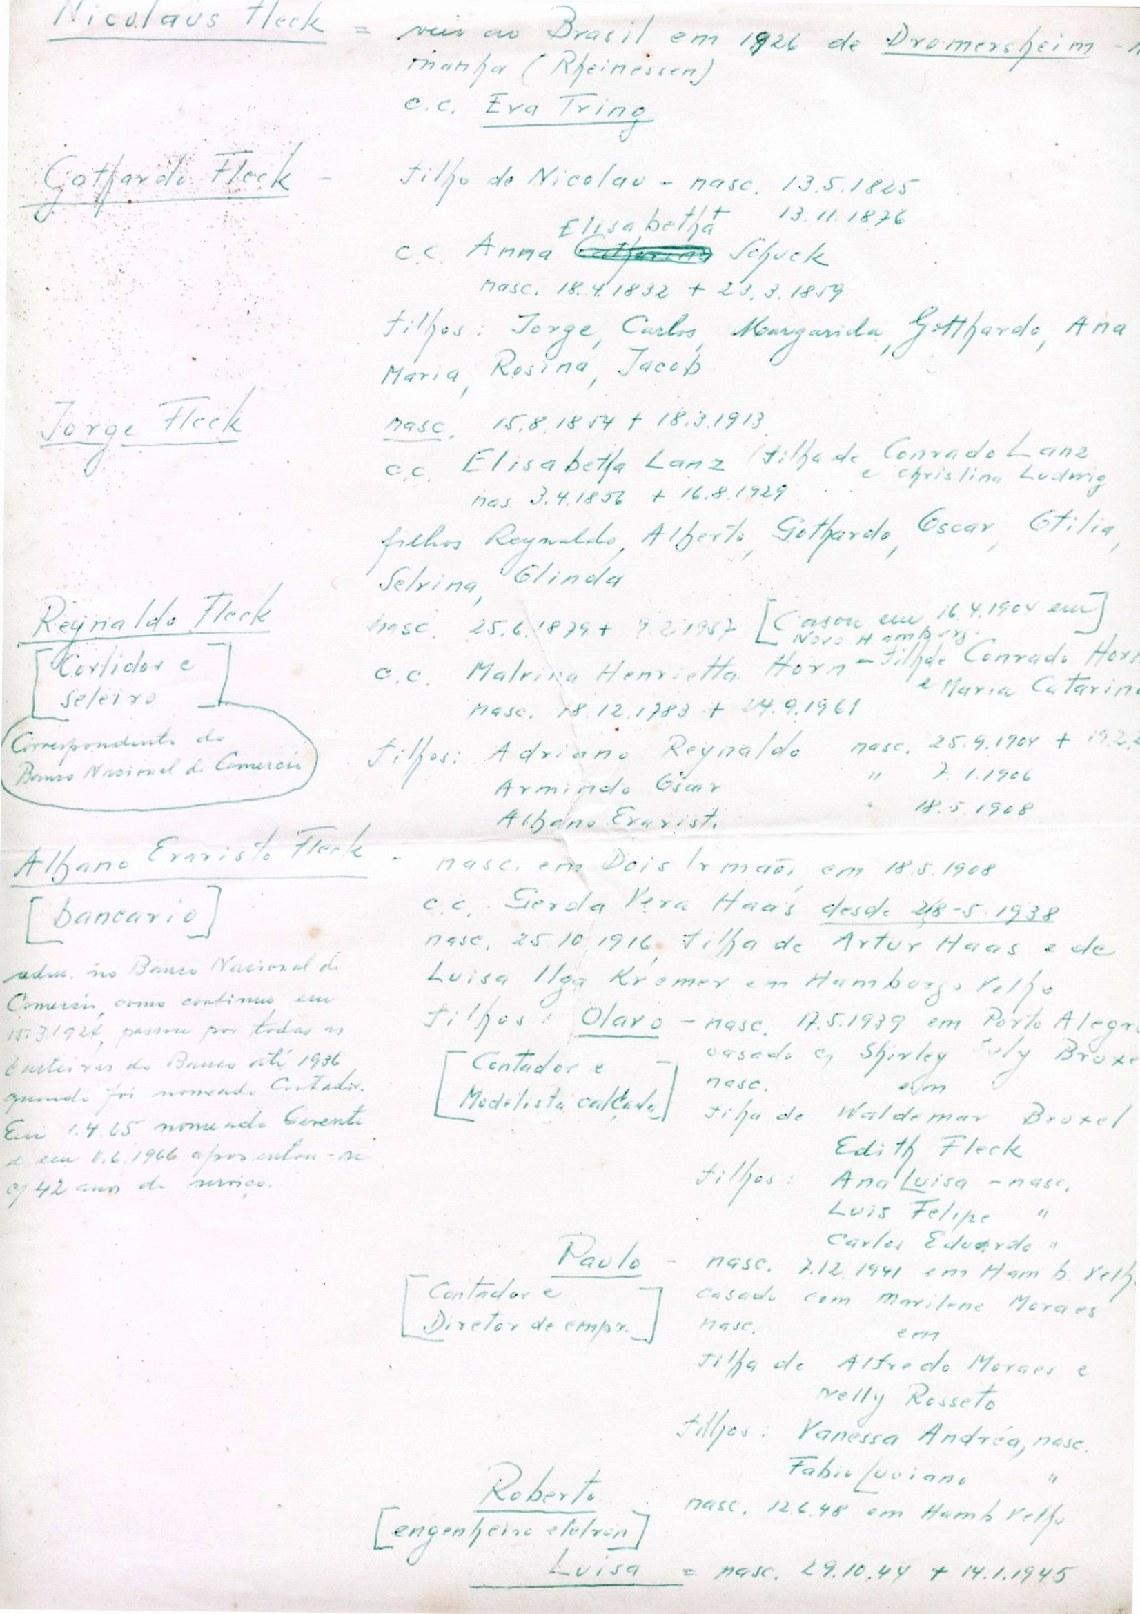 Nicolaus Fleck = veio ao Brasil em 1926 de Dromersheim -
manha (Rheinessen)
c.c. Eva Tring
Gothardo Fleck - filho de Nicolau - nasc. 13.5.1825
13.11.1876
Elisabetha +
c.c. Anna Schuck
nasc. 18.4.1832 + 23.3.1859
filhos: Jorge, Carlos, Margarida, Gotthardo, Ana
Maria, Rosina, Jacob
Jorge Fleck nasc. 15.8.1854 + 18.3.1913
c.c. Elisabetha Lanz filha de Conrado Lanz
e Christina Ludwig
nas 3.4.1856 + 16.8.1929
filhos Reynaldo, Alberto, Gothardo, Oscar, Otilia,
Selvina, Olinda
Reynaldo Fleck nasc. 25.6.1879 + 9.2.1957 [Casou em 16.4.1904 em]
Novo Hamburgo
[Cortidor e
seleiro]
c.c. Malvina Henrietta Horn - filha de Conrado Horn
e Maria Catarina
nasc. 18.12.1783 + 24.9.1961
Correspondente do
Banco Nacional do Comercio
filhos: Adriano Reynaldo nasc. 25.9.1904 +
Armindo Oscar " 7.1.1906
Albano Evarist. 18.5.1908
Albano Evaristo Fleck - nasc. em Dois Irmãos, em 18.5.1908
[bancario]
c.c. Gerda Vera Haas desde 28-5-1938
nasc. 25.10.1916 filha de Artur Haas e de
Luisa Ilga Krömer em Hamburgo Velho
adm. no Banco Nacional do
Comercio, como continuo em
15.3.1924, passou por todas as
carteiras do Banco até 1936
quando foi nomeado Contador.
Em 1.4.65 nomeado Gerente
e em 1966 aposentou-se
c/ 42 anos de serviço.
filhos: Olavo - nasc. 17.5.1939 em Porto Alegre
[Contador e
Modelista calçado]
casado c/ Shirley Suly Bruxel
nasc. em
filha de Waldemar Bruxel
Edith Fleck
filhos: Ana Luisa - nasc.
Luis Felipe "
Carlos Eduardo "
Paulo - nasc. 7.12.1941 em Hamb. Velh
[Contador e
Diretor de empr.]
casado com Marilene Moraes
nasc. em
filha de Alfredo Moraes e
Nelly Rosseto
filhos: Vanessa Andréa, nasc.
Fabio Luciano "
Roberto nasc. 12.6.48 em Hamb Velho
[engenheiro eletron]
Luisa = nasc. 29.10.44 + 14.1.1945